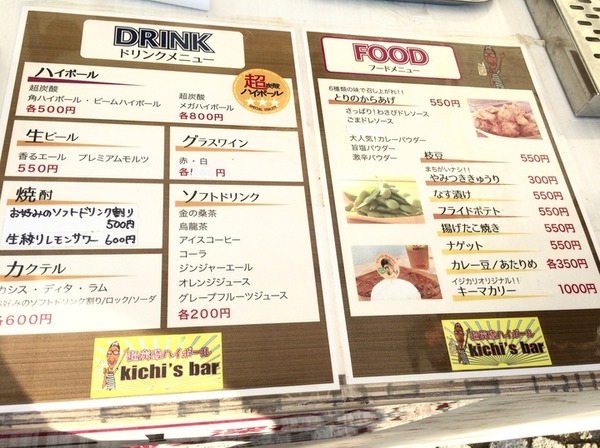 DRINK
ドリンクメニュー
ハイボール
超炭酸
角ハイボール・ビームハイボール
各500円
超炭酸
メガハイボール
各800円
超炭酸
ハイボール
生ビール
香るエール プレミアムモルツ
550円
グラスワイン
赤・白
各 円
焼酎
お好みのソフトドリンク割り
500円
生絞りレモンサワー 600円
カクテル
カシス・ディタ・ラム
お好みのソフトドリンク割り/ロック/ソーダ
各600円
ソフトドリンク
金の桑茶
烏龍茶
アイスコーヒー
コーラ
ジンジャーエール
オレンジジュース
グレープフルーツジュース
各200円
超炭酸ハイボール
kichi's bar
FOOD
フードメニュー
6種類の味で召し上がれ!!
とりのからあげ 550円
さっぱり!わさびドレソース
ごまドレソース
大人気!カレーパウダー
旨塩パウダー
激辛パウダー
枝豆 550円
まちがいナシ!!
やみつききゅうり 300円
なす漬け 550円
フライドポテト 550円
揚げたこ焼き 550円
ナゲット 550円
カレー豆/あたりめ 各350円
イジカリオリジナル!!
キーマカリー 1000円
超炭酸ハイボール
kichi's bar